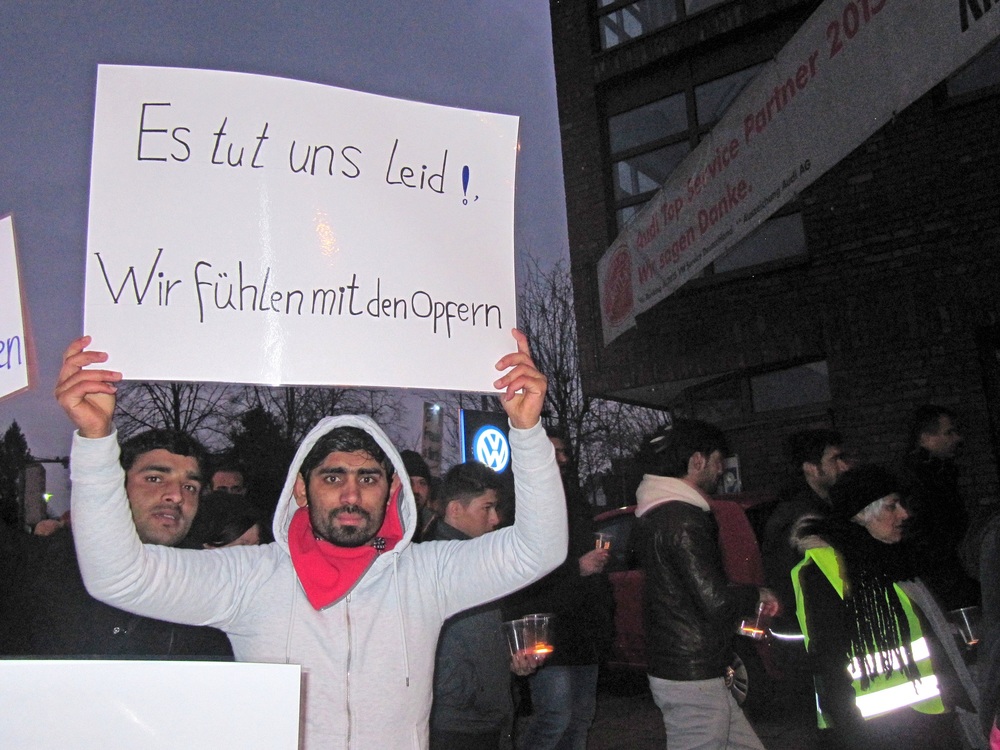 Es tut uns Leid!,
Wir fühlen mit den Opfern
en
Audi Top Service Partner 2015
Wir sagen Danke.
Audi AG